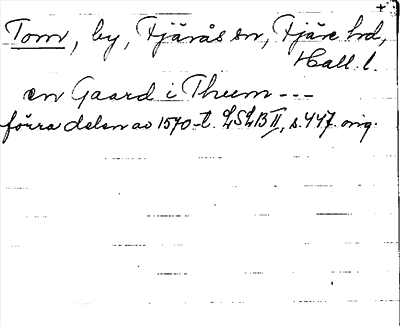 +
Tom, by, Fjärås sn, Fjäre hd,
Hall. l.
en Gaard i Thum ---
förra delen av 1570-t. LSLB II, s. 447. orig.